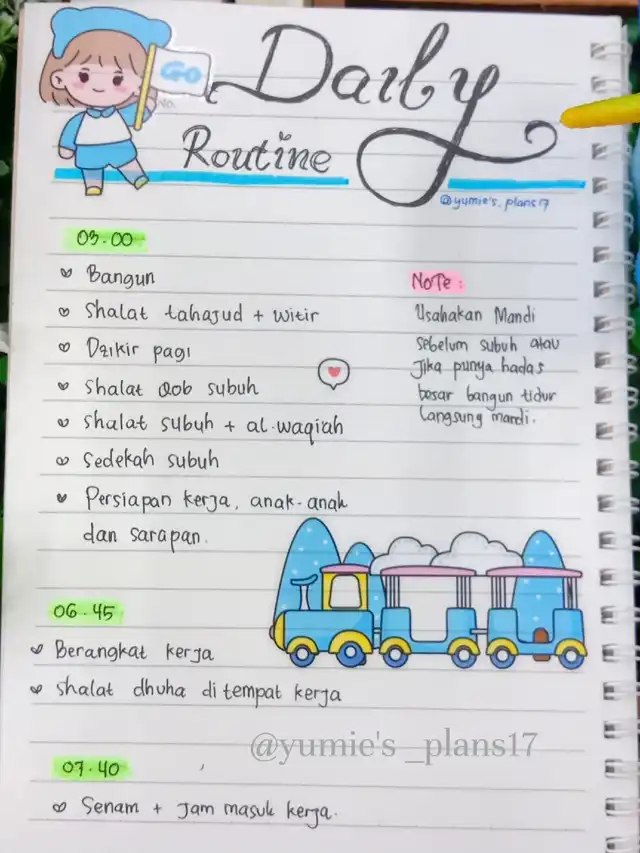 GO
Daily
Routine
@yumie's_plans17
03.00
Bangun
Shalat tahajud + witir
Dzikir pagi
Shalat Qob subuh
Shalat subuh + al-waqiah
Sedekah subuh
Persiapan kerja, anak-anak
dan sarapan.
Note :
Usahakan Mandi
sebelum subuh atau
Jika punya hadas
besar bangun tidur
langsung mandi.
06.45
Berangkat kerja
Shalat dhuha di tempat kerja
@yumie's _plans17
07.40
Senam + Jam masuk kerja.